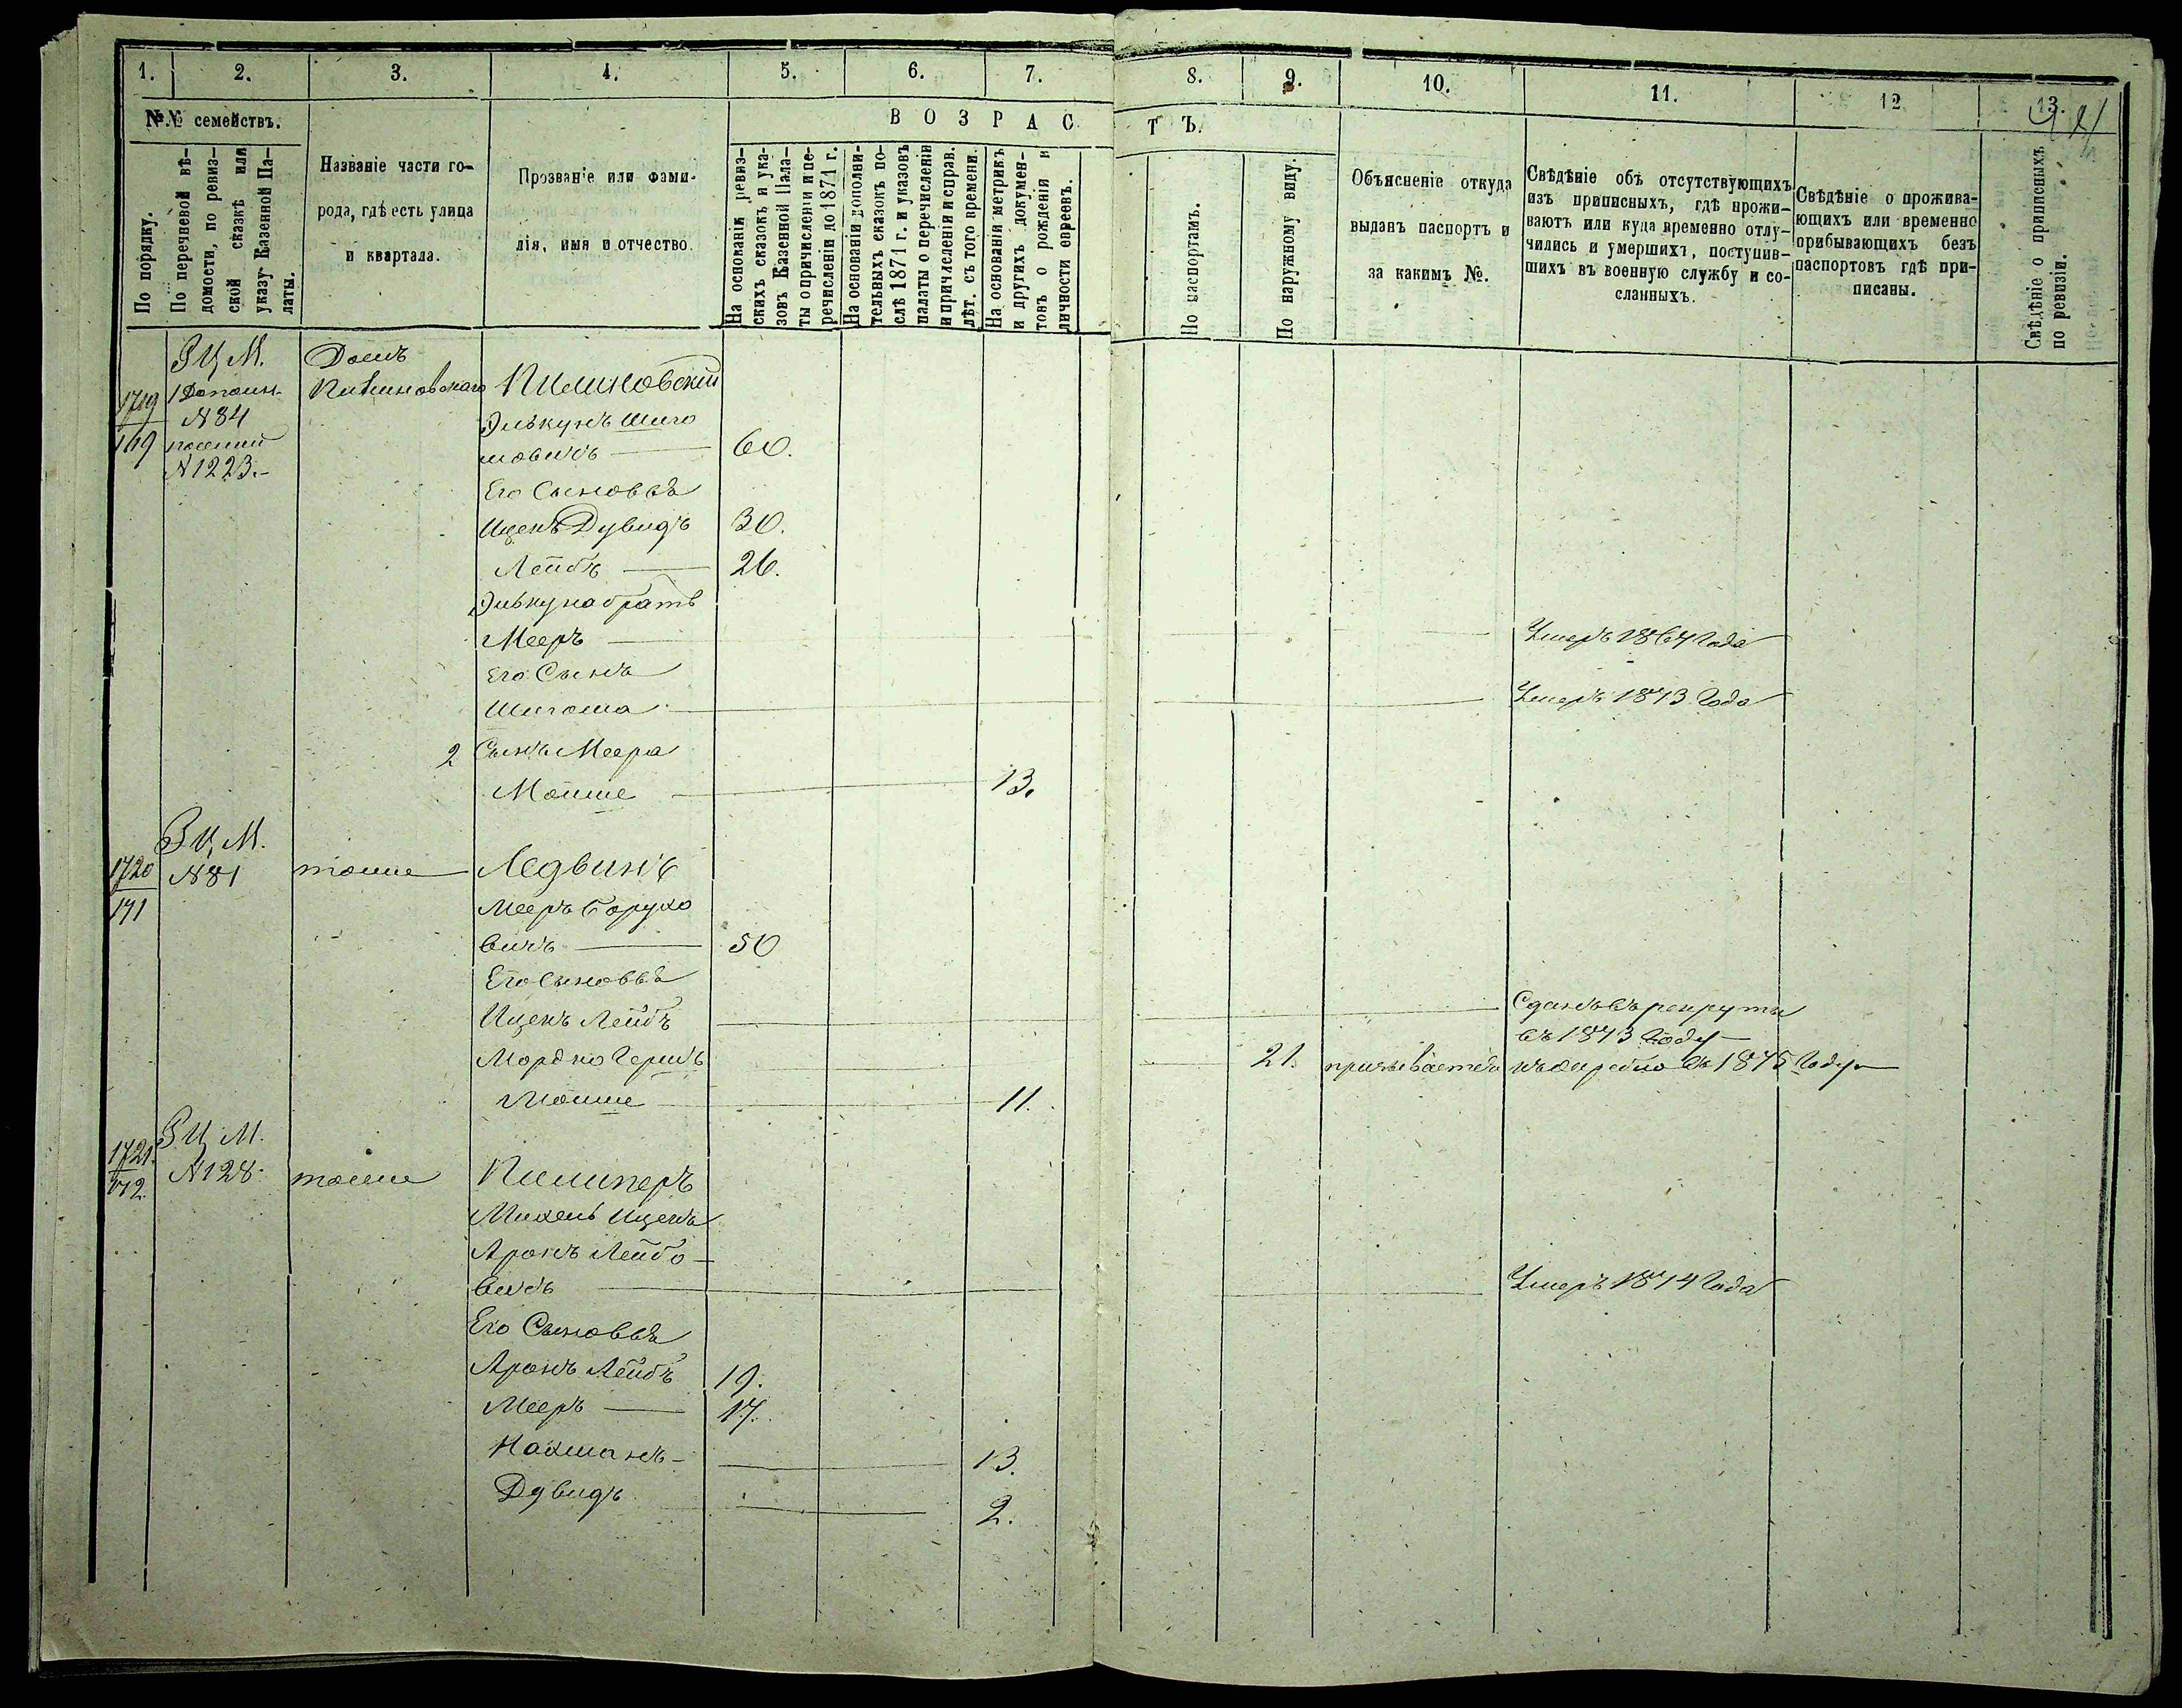 1. 2. 3. 4. 5. 6. 7. 8. 9. 10. 11. 12 13.
№№ семействъ.
ВОЗРАСТЪ.
По порядку.
По перечневой вѣ-
домости, по ревиз-
ской сказкѣ или
указу Казенной Па-
латы.
Названіе части го-
рода, гдѣ есть улица
и квартала.
Прозваніе или фами-
лія, имя и отчество.
На основаніи ревиз-
скихъ сказокъ и ука-
зовъ Казенной Пала-
ты о причисленіи и пе-
речисленіи до 1871 г.
На основаніи дополни-
тельныхъ сказокъ по-
слѣ 1871 г. и указовъ
палаты о перечисленіи
и причисленіи и справ.
лѣт. съ того времени.
На основаніи метрикъ
и другихъ докумен-
товъ о рожденіи и
личности евреевъ.
По паспортамъ.
По наружному виду.
Объясненіе откуда
выданъ паспортъ и
за какимъ №.
Свѣдѣніе объ отсутствующихъ
изъ приписныхъ, гдѣ прожи-
ваютъ или куда временно отлу-
чились и умершихъ, поступив-
шихъ въ военную службу и со-
сланныхъ.
Свѣдѣніе о прожива-
ющихъ или временно
прибывающихъ безъ
паспортовъ гдѣ при-
писаны.
Свѣдѣніе о приписныхъ
по ревизіи.
З Ц М. Домъ
1719 1 Дополн. Пилиновскаго Пилиновскій
№ 84
Элькунъ Шиго
N 1223.-
мовичъ 60.
Его Сыновья
Ицекъ Дувидъ 30.
Лейбъ 26.
Элькуна братъ
Мееръ Умеръ 1864 Года
Его Сынъ
Шигома Умеръ 1873 Года
2 Сынъ Меера
Мошие 13.
З Ц М.
1720 № 81 тоже Ледвинъ
171
Мееръ Борухо
вичъ 50
Его Сыновья
Ицекъ Лейбъ Сданъ въ рекруты
въ 1873 Году
Мордко Гершъ 21. призывается къ жребію въ 1875 Году
Мошие 11.
З Ц М.
1721. № 128. тоже Пилиперъ
172.
Михель Ицекъ
Аронъ Лейбо-
вичъ Умеръ 1874 Года
Его Сыновья
Аронъ Лейбъ 19.
Мееръ 17.
Нахманъ 13.
Дувидъ 2.